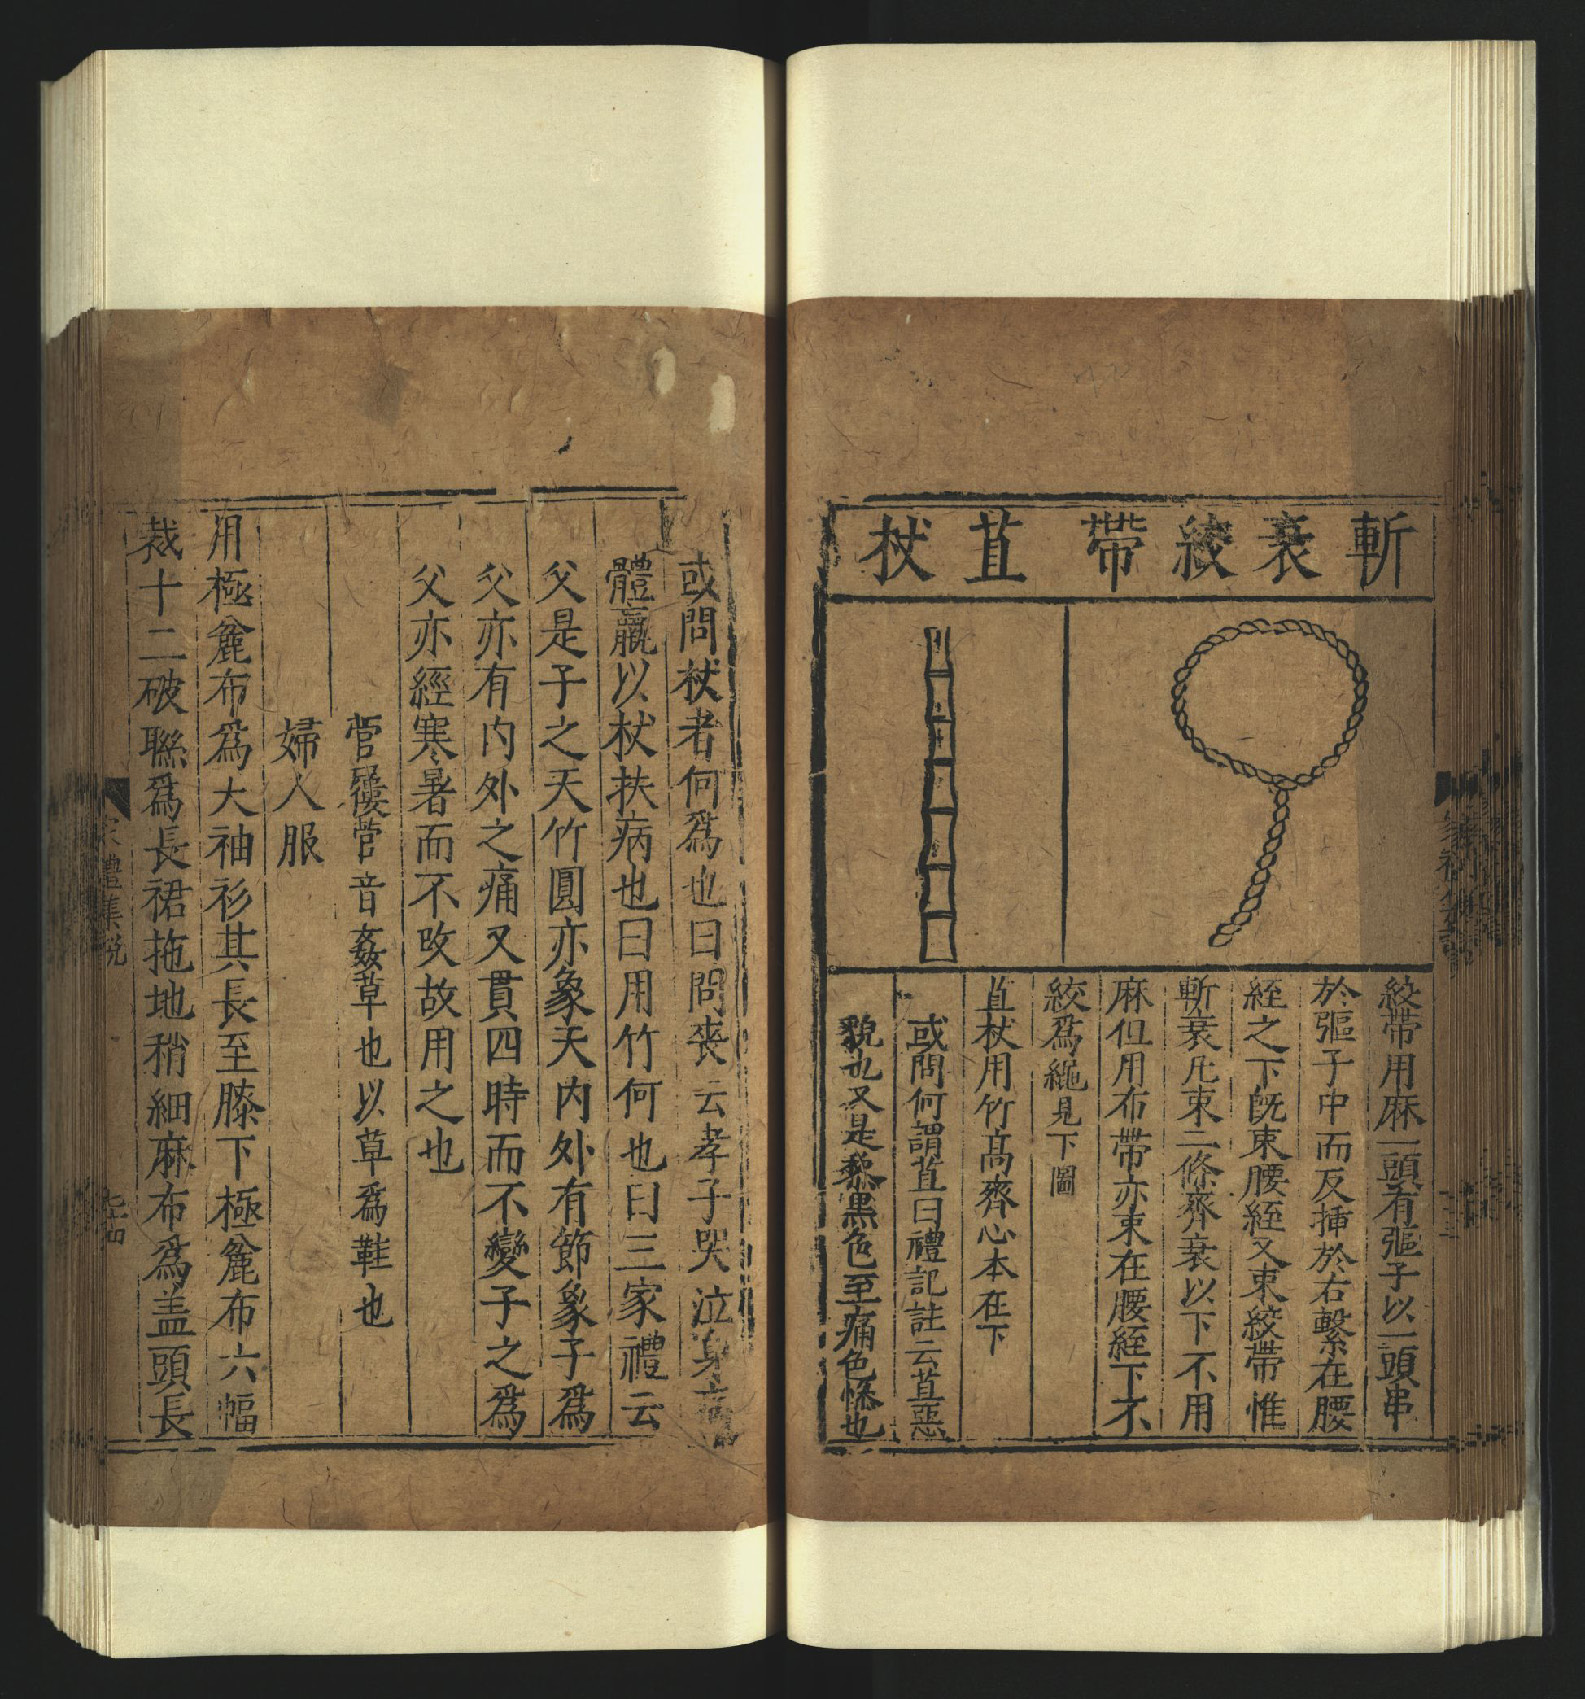 斬衰絞帶苴杖
絞帶用麻一頭有彄子以一頭串
於彄子中而反揷於右繫在腰
絰之下旣束腰絰又束絞帶惟
斬衰凡束二條齊衰以下不用
麻但用布帶亦束在腰絰下不
絞爲繩見下圖
苴杖用竹高齊心本在下
或問何謂苴曰禮記註云苴惡
貌也又是黎黑色至痛色慘也
或問杖者何爲也曰問喪云孝子哭泣身病
體羸以杖扶病也曰用竹何也曰三家禮云
父是子之天竹圓亦象天内外有節象子爲
父亦有内外之痛又貫四時而不變子之爲
父亦經寒暑而不改故用之也
菅屨菅音姦草也以草爲鞋也
婦人服
用極麄布爲大袖衫其長至膝下極麄布六幅
裁十二破聮爲長裙拖地稍細麻布爲盖頭長
家禮集説
七四